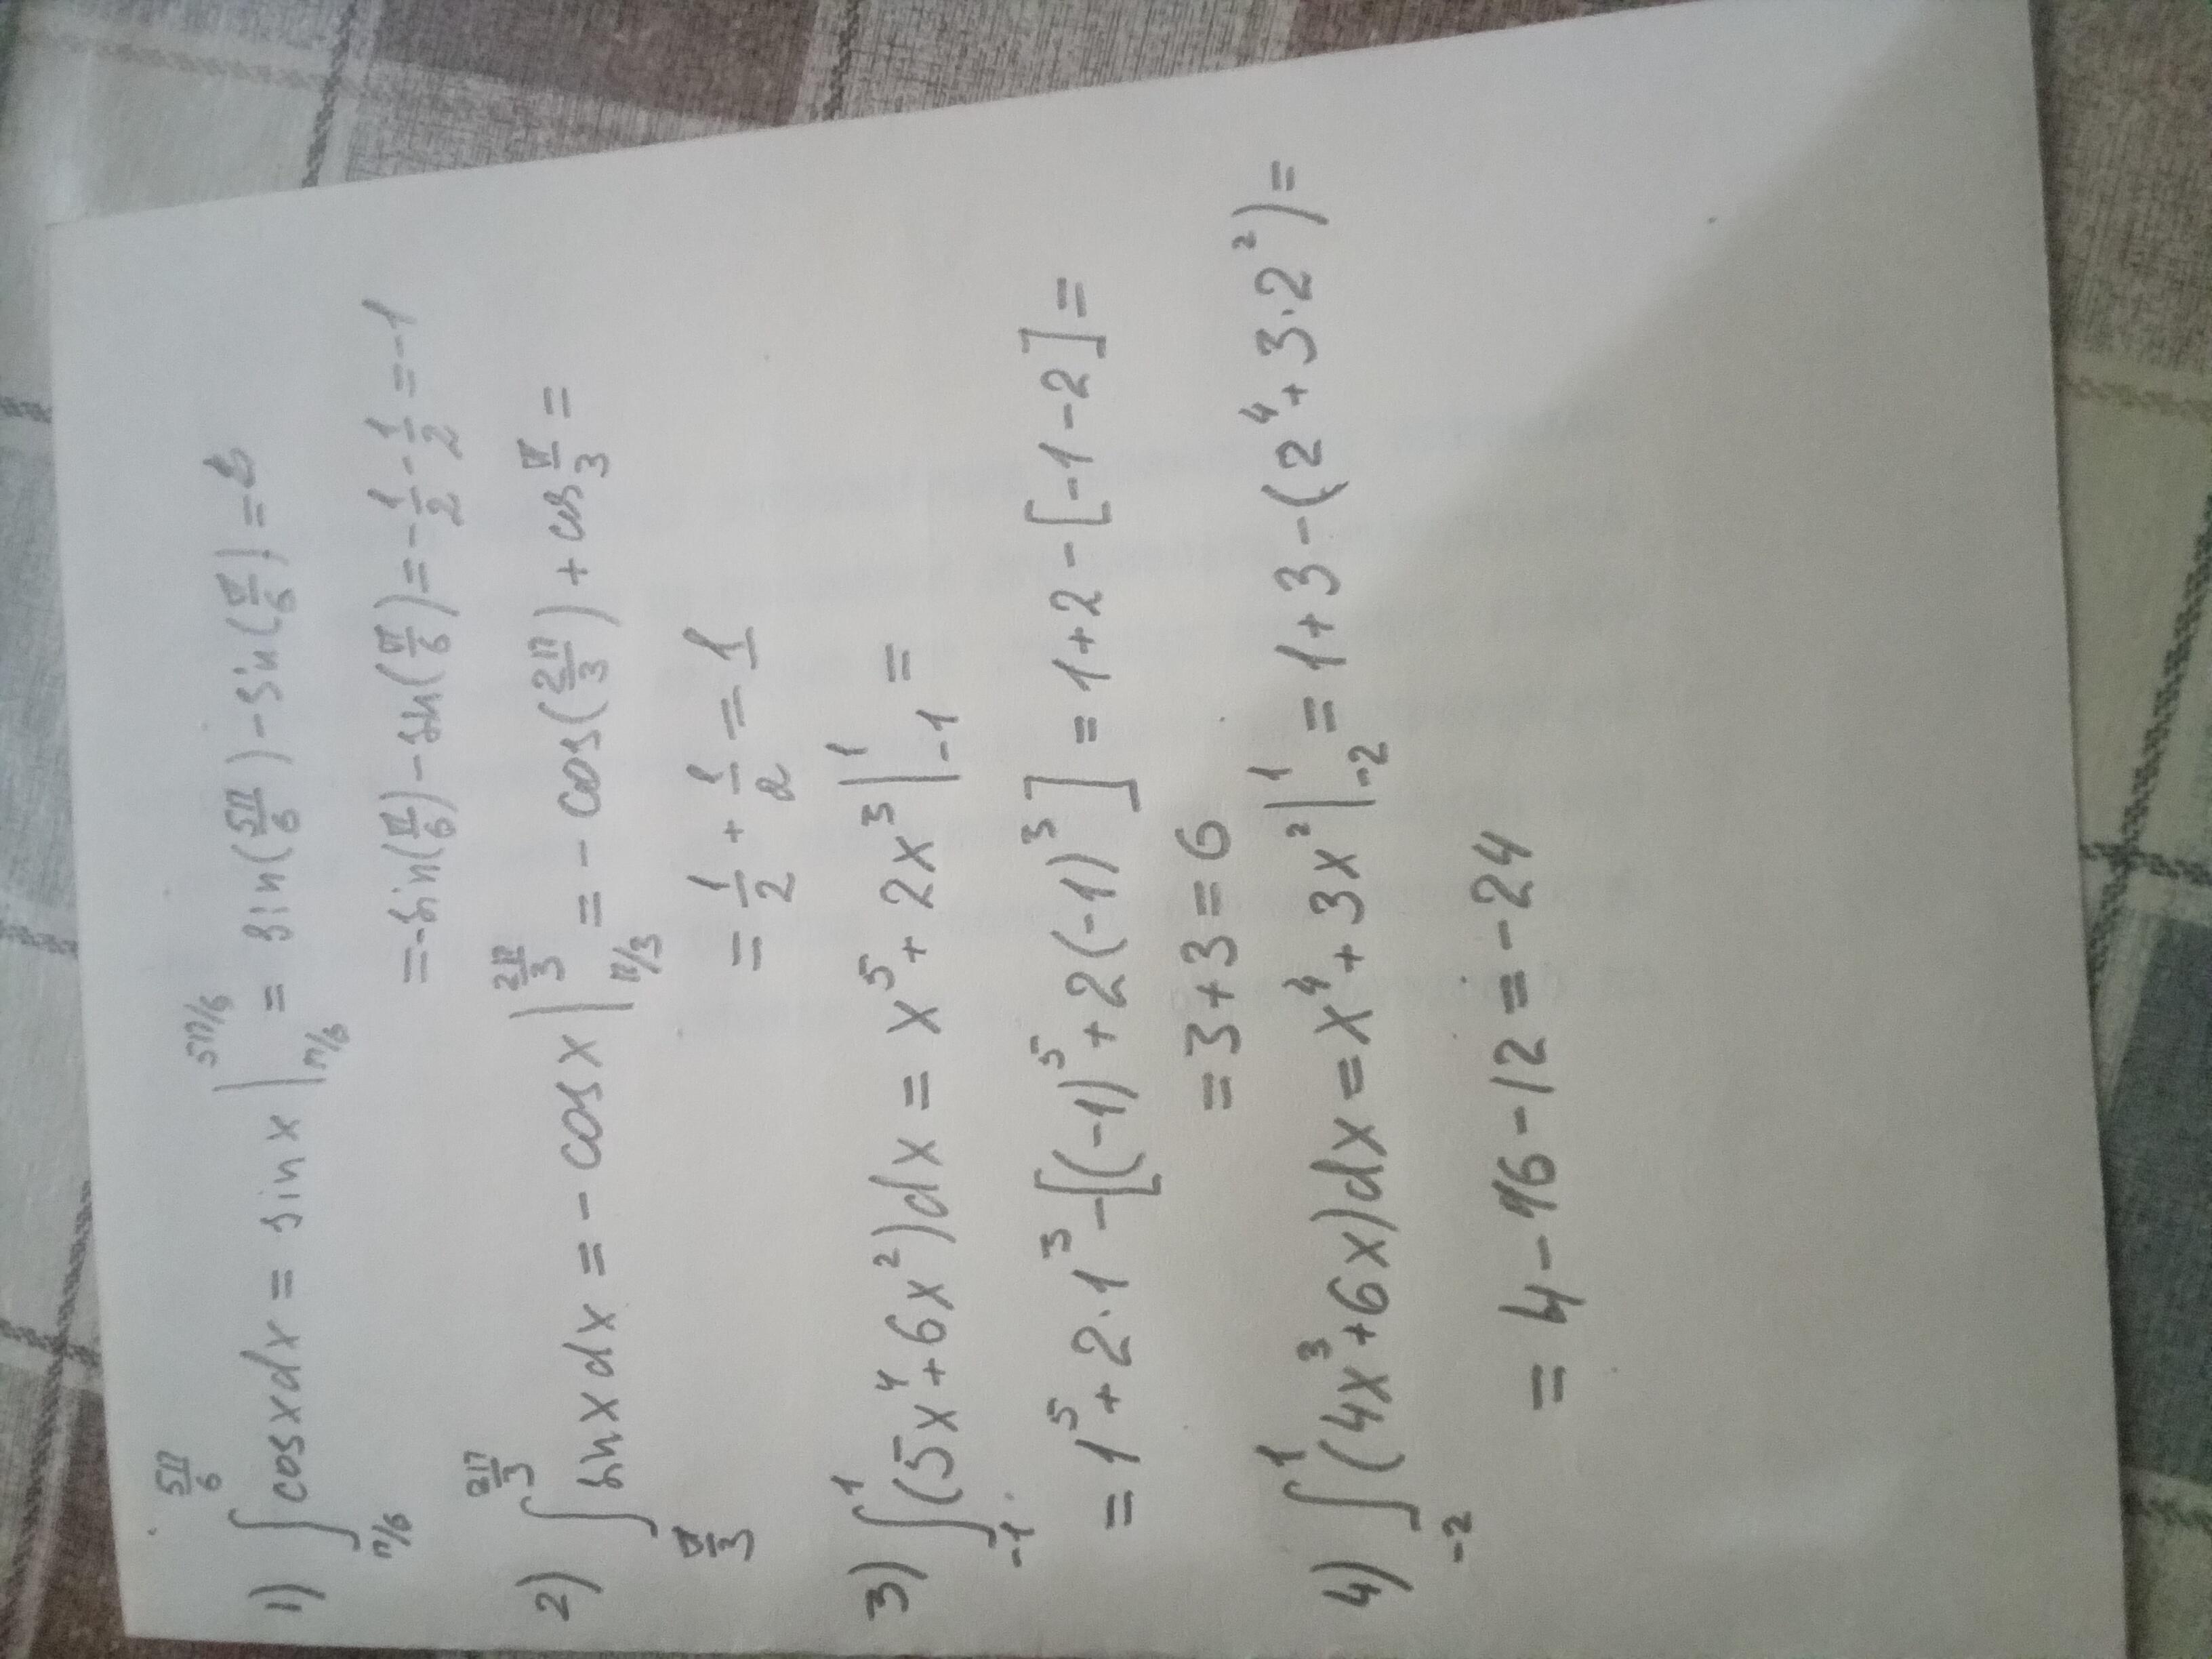 1) ∫_{π/6}^{5π/6} cosxdx = sin x |_{π/6}^{5π/6} = sin(5π/6) - sin(π/6) =
= -sin(π/6) - sin(π/6) = -1/2 - 1/2 = -1
2) ∫_{π/3}^{2π/3} sinxdx = -cosx |_{π/3}^{2π/3} = -cos(2π/3) + cos π/3 =
= 1/2 + 1/2 = 1
3) ∫_{-1}^{1} (5x⁴+6x²)dx = x⁵+2x³ |_{-1}^{1} =
= 1⁵+2·1³-[(-1)⁵+2(-1)³] = 1+2-[-1-2] =
= 3+3 = 6
4) ∫_{-2}^{1} (4x³+6x)dx = x⁴+3x² |_{-2}^{1} = 1+3-(2⁴+3·2²) =
= 4-16-12 = -24